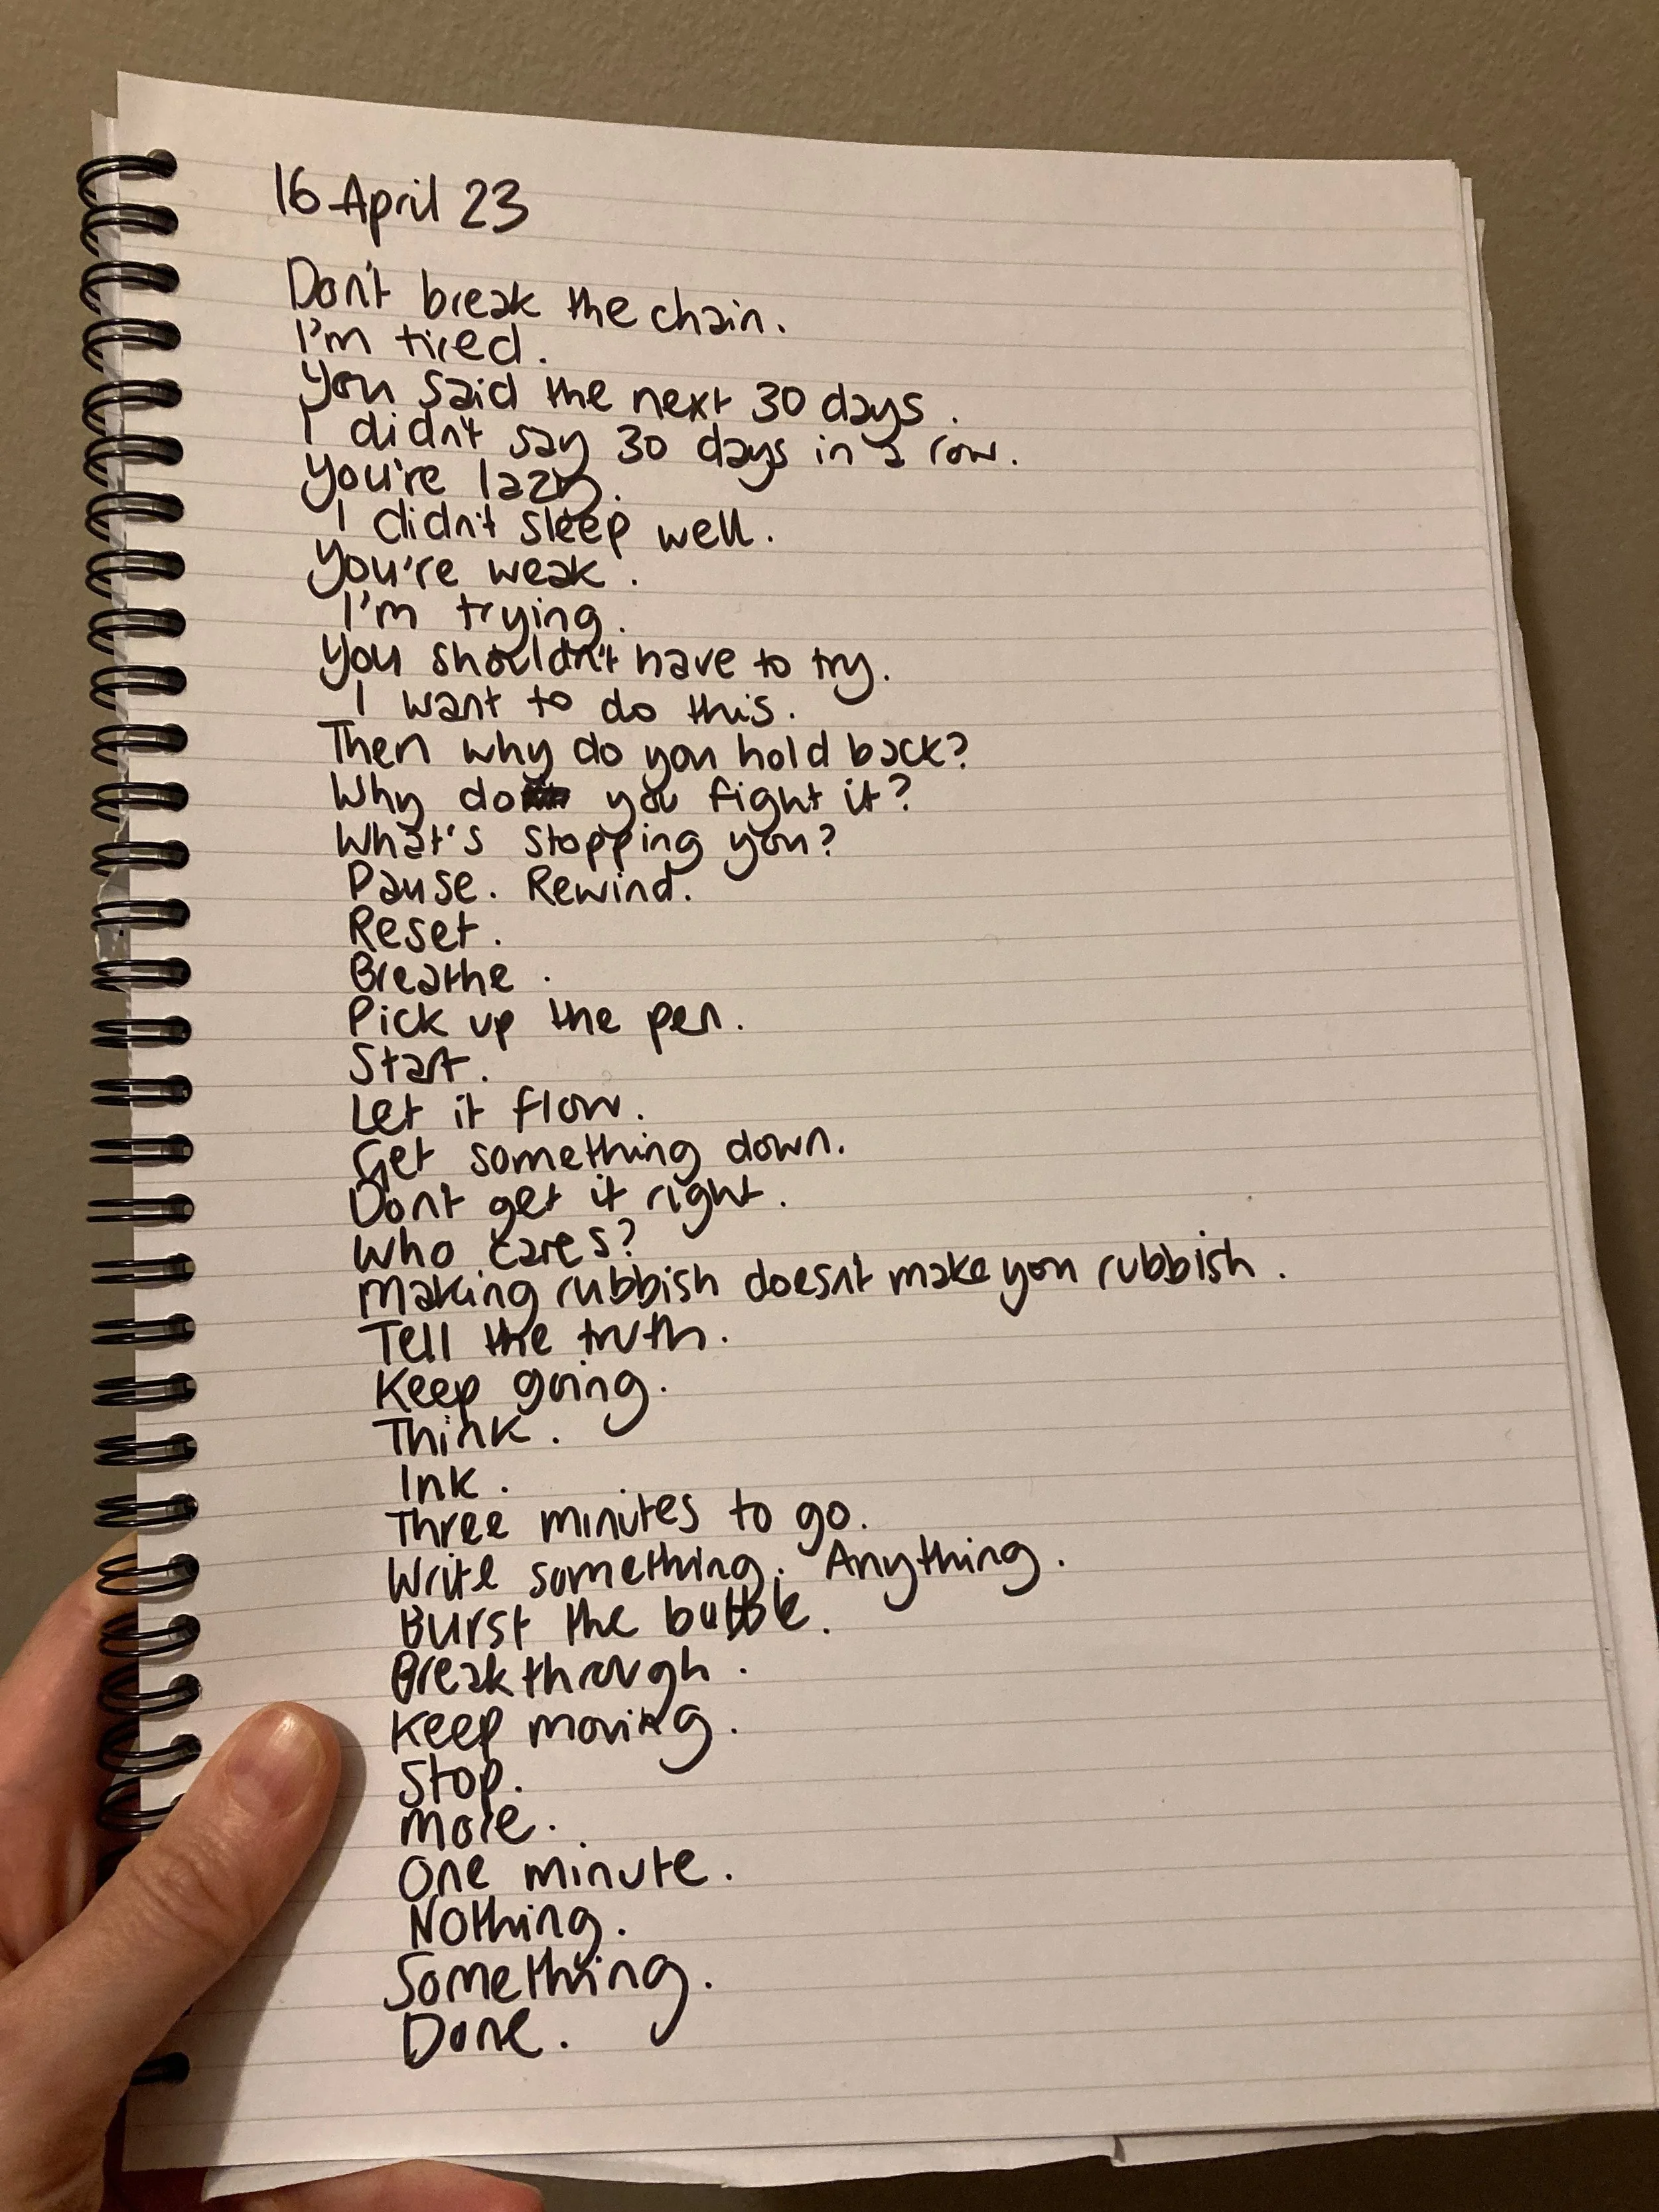 16 April 23
Don't break the chain.
I'm tired.
You said the next 30 days.
I didn't say 30 days in a row.
You're lazy.
I didn't sleep well.
You're weak.
I'm trying.
You shouldn't have to try.
I want to do this.
Then why do you hold back?
Why do you fight it?
What's stopping you?
Pause. Rewind.
Reset.
Breathe.
Pick up the pen.
Start.
Let it flow.
Get something down.
Don't get it right.
Who cares?
Making rubbish doesn't make you rubbish.
Tell the truth.
Keep going.
Think.
Ink.
Three minutes to go.
Write something. Anything.
Burst the bubble.
Breakthrough.
Keep moving.
Stop.
More.
One minute.
Nothing.
Something.
Done.